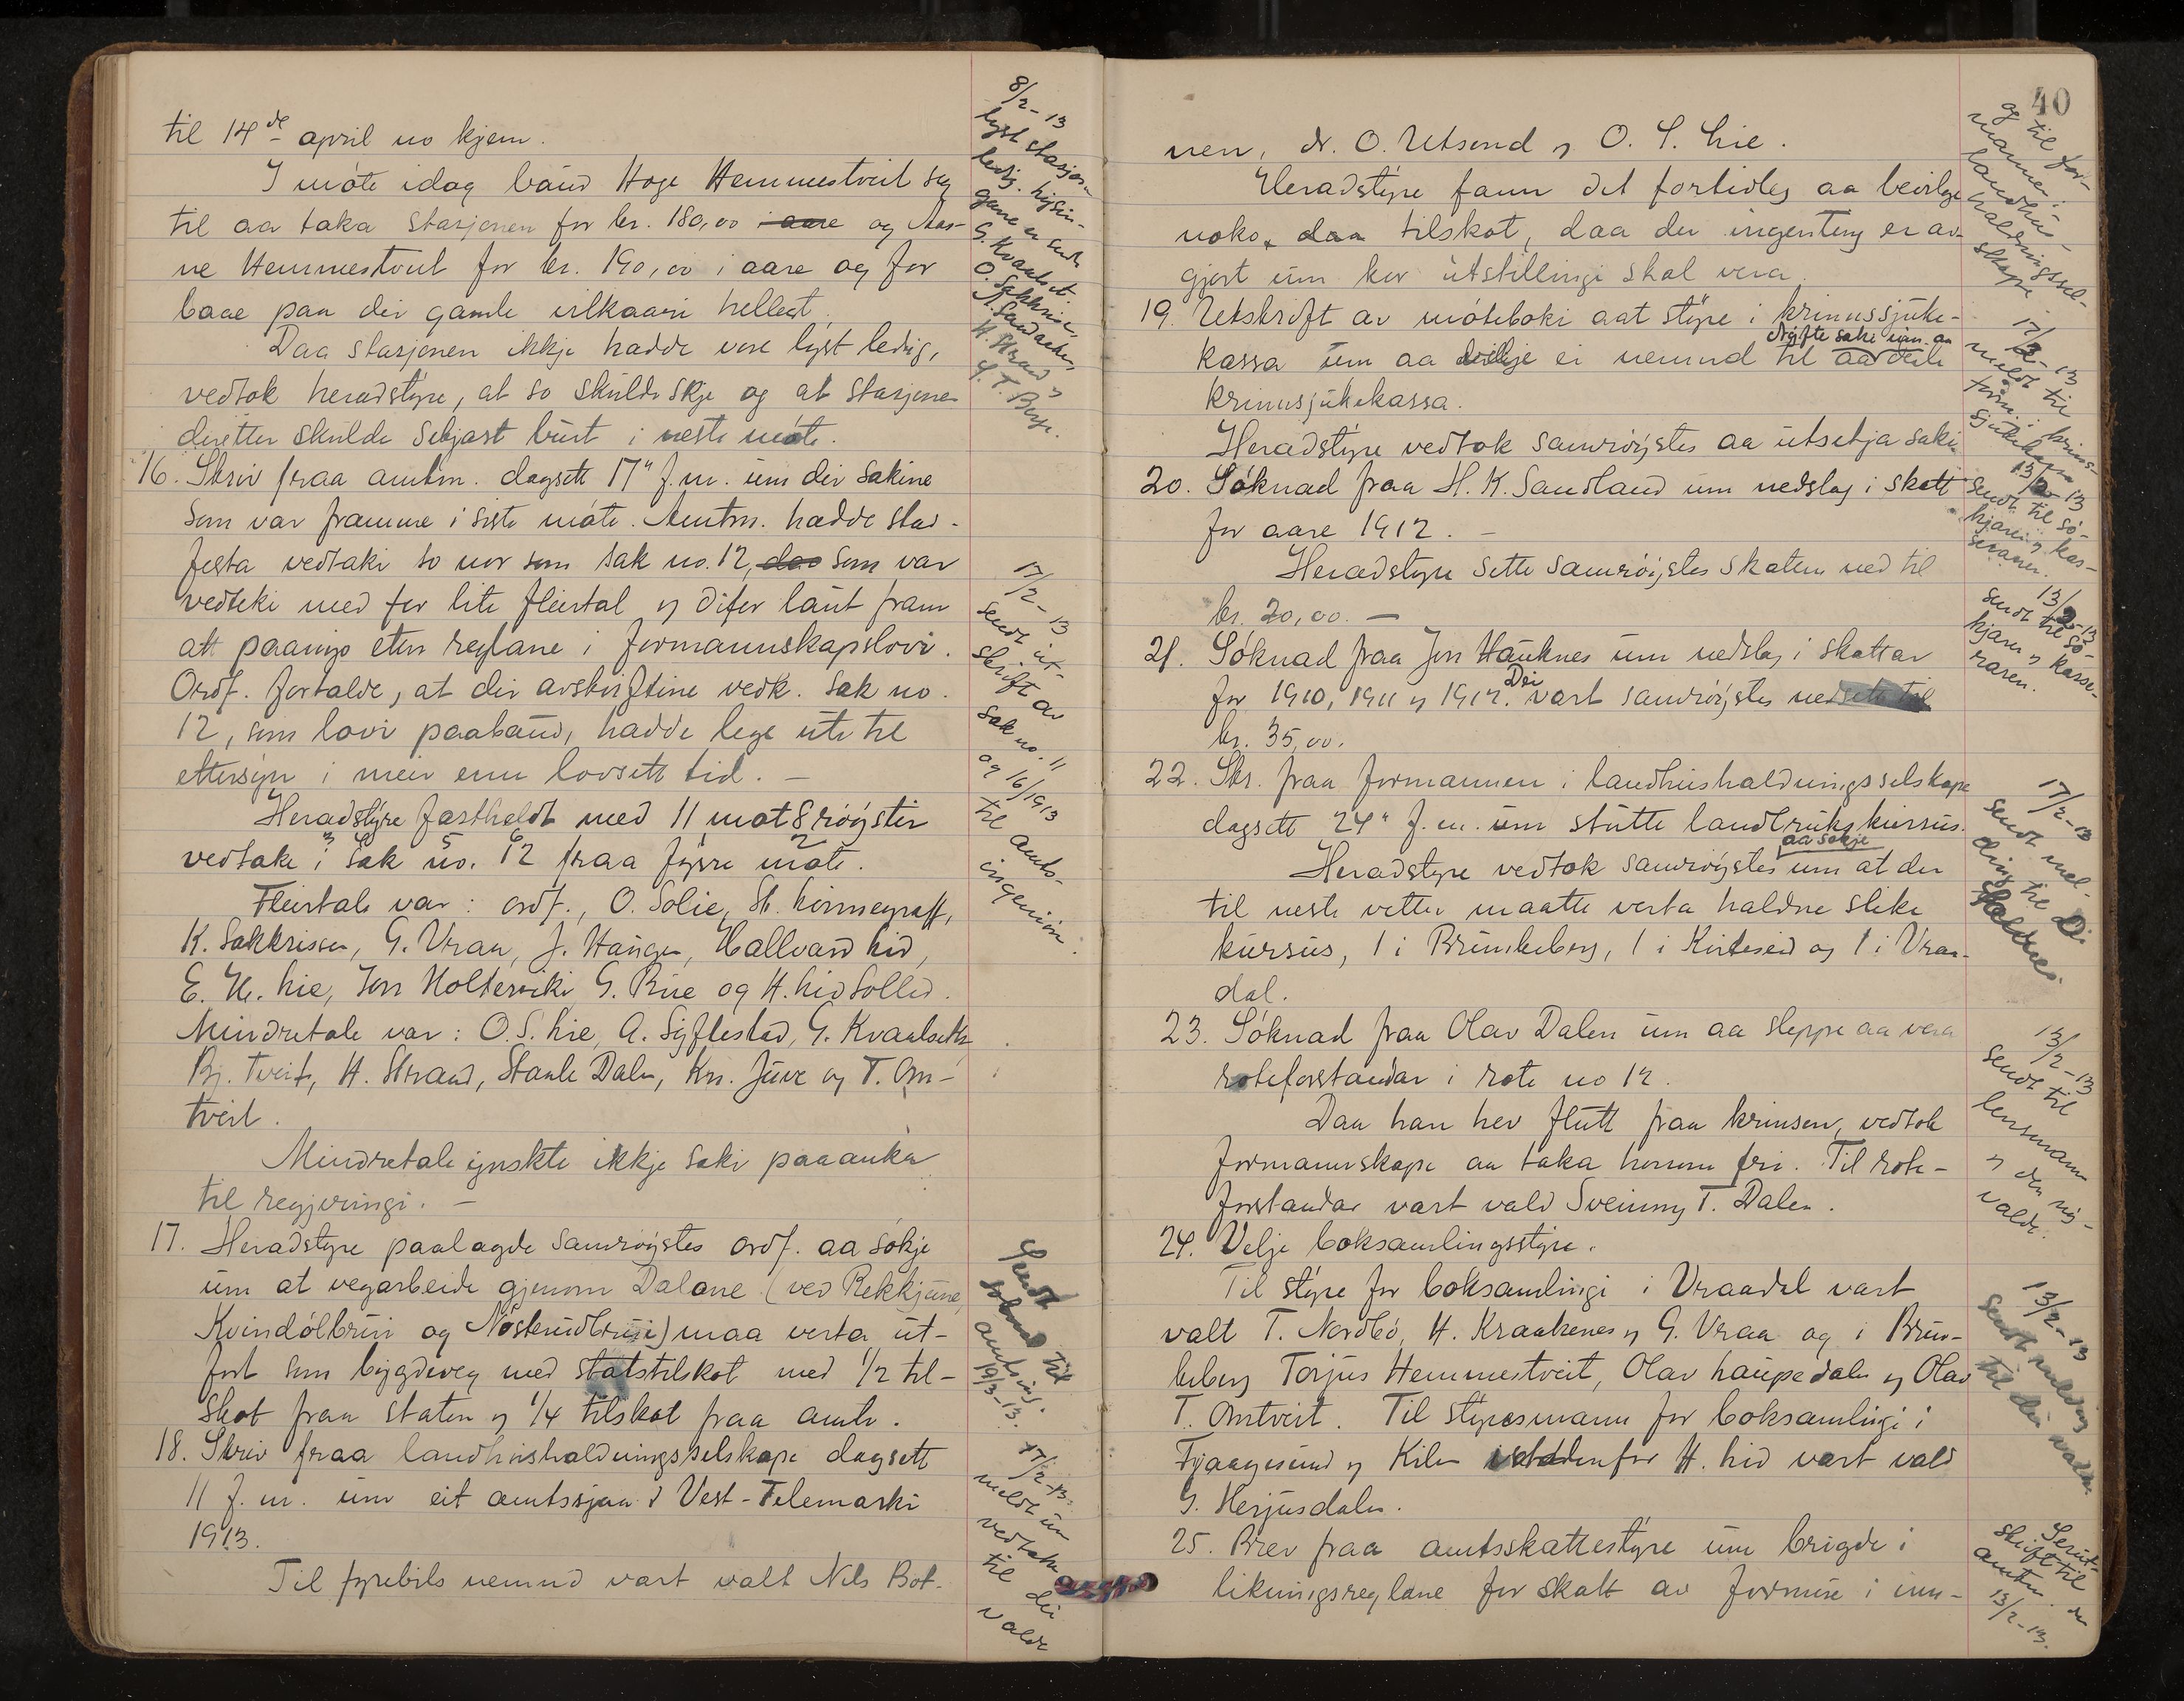 til 14de april no kjem.
I møte idag baud Hoge Hemmestveit seg
til aa taka stasjonen for kr. 180,00 i aare og Aas-
ne Hemmestveit for kr. 190,00 i aare og for
baae paa dei gamle vilkaari hellest.
Daa stasjonen ikkje hadde vore lyst ledig,
vedtok heradstyre, at so skulde skje og at stasjonen
deretter skulde setjast burt i neste møte.
16. Skriv fraa amtm. dagsett 17" f.m. um dei sakine
som var framme i siste møte. Amtm. hadde stad-
festa vedtaki so nor som sak no. 12, som var
vedteki med for lite fleirtal og difor laut fram
att paanyo etter reglane i formannskapslovi.
Ordf. fortalde, at dei avskriftine vedk. sak no.
12, som lovi paabaud, hadde lege ute til
ettersyn i meir enn lovsett tid. —
Heradstyre fastheldt med 11 mot 8 røyster
vedtake i sak no. 12 fraa fyrre møte.
Fleirtale var: ordf., O. Solie, St. Kirmegraff,
K. Sakkrissen, G. Vraa, J. Haugen, Hallvard Lid,
E. H. Lie, Jon Holtervik, G. Rue og H. Lid Sollid.
Mindretale var: O. S. Lie, A. Syftestad, G. Kvaalseth,
Bj. Tveit, H. Strand, Staale Dalen, Kn. Juve og T. Om-
tveit.
Mindretale ynskte ikkje saki paaanka
til regjeringi. —
17. Heradstyre paalagde samrøystes ordf. aa søkje
um at vegarbeide gjenom Dalane (ved Rekkjune,
Kvindølbrui og Nøsterudbrui) maa verta ut-
ført som bygdeveg med statstilskot med 1/2 til-
skot fraa staten og 1/4 tilskot fraa amte.
18. Skriv fraa landhushaldningsselskape dagsett
11 f.m. um eit amtssjaa i Vest-Telemarki
1913.
Til fyrebils nemnd vart valt Nils Bot-
8/2-13
lyst stasjonen
ledig. lysin-
gane er sendt
G. Kvaalset,
O. Sakkrisen,
H. Strand og
G. T. Berge.
17/2-13
sendt ut-
skrift av
sak no. 11
og 16/1913
til amts-
ingeniøren.
Sendt
søknad til
amtsing.
19/3-13.
17/2-13.
meldt um
vedtaket
til dei
valde
40
nen, N. O. Utsond og O. S. Lie.
Heradstyre fann det fortidleg aa bevilge
noko tilskot, daa der ingenting er av-
gjort um kor utstillingi skal vera.
19. Utskrift av møteboki aat styre i krinssjuke-
kassa um aa velje ei nemnd til aa drøfte saki um aa deile
krinssjukekassa.
Heradstyre vedtok samrøystes aa utsetja saki.
20. Søknad fraa H. K. Sandland um nedslag i skatt
for aare 1912. —
Heradstyre sette samrøystes skatten ned til
kr. 20,00. —
21. Søknad fraa Jon Hauknes um nedslag i skattar
for 1910, 1911 og 1912. Dei vart samrøystes nedsett til
kr. 35,00.
22. Skr. fraa formannen i landhushaldningsselskape
dagsett 24" f.m. um stutte landbrukskursus.
Heradstyre vedtok samrøystes aa søkje um at der
til neste vetter maatte verta haldne slike
kursus, 1 i Brunkeberg, 1 i Kviteseid og 1 i Vraa-
dal.
23. Søknad fraa Olav Dalen um aa sleppe aa vera
roteforstandar i rote no 12.
Daa han hev flutt fraa krinsen, vedtok
formannskape aa taka honom fri. Til rote-
forstandar vart vald Sveinung T. Dalen.
24. Velje boksamlingsstyre.
Til styre for boksamlingi i Vraadal vart
valt T. Nordbø, H. Kraakenes og G. Vraa og i Brun-
keberg Torjus Hemmestveit, Olav Laupedalen og Olav
T. Omtveit. Til styresmann for boksamlingi i
Fjaagesund og Kilen istadenfor H. Lid vart vald
G. Herjusdalen.
25. Brev fraa amtsskattestyre um brigde i
likningsreglane for skatt av formue i inn-
og til for-
mannen i
landhus-
haldningssel-
skape
17/2-13
meldt til
form. i krins-
sjukekassa
13/2-13
sendt til sø-
kjaren og kas-
seraren.
13/2-13
sendt til sø-
kjaren og kasse-
raren.
17/2-13
sendt mel-
ding til
13/2-13
sendt til
lensmann
og den ny-
valde.
13/2-13
sendt melding
til dei valde.
Send ut-
skrift til
amtm. den
13/2-13.